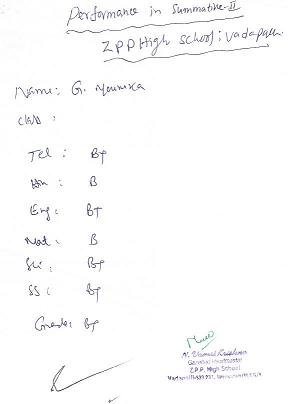 Performance in Summative-II
ZPP High School; Vadapalli
Name: G. Mounika
Class :
Tel : B+
Hin : B
Eng : B+
Mat : B
Sci : B+
SS : B+
Grade: B+
Gazetted Headmaster
Z.P.P. High School